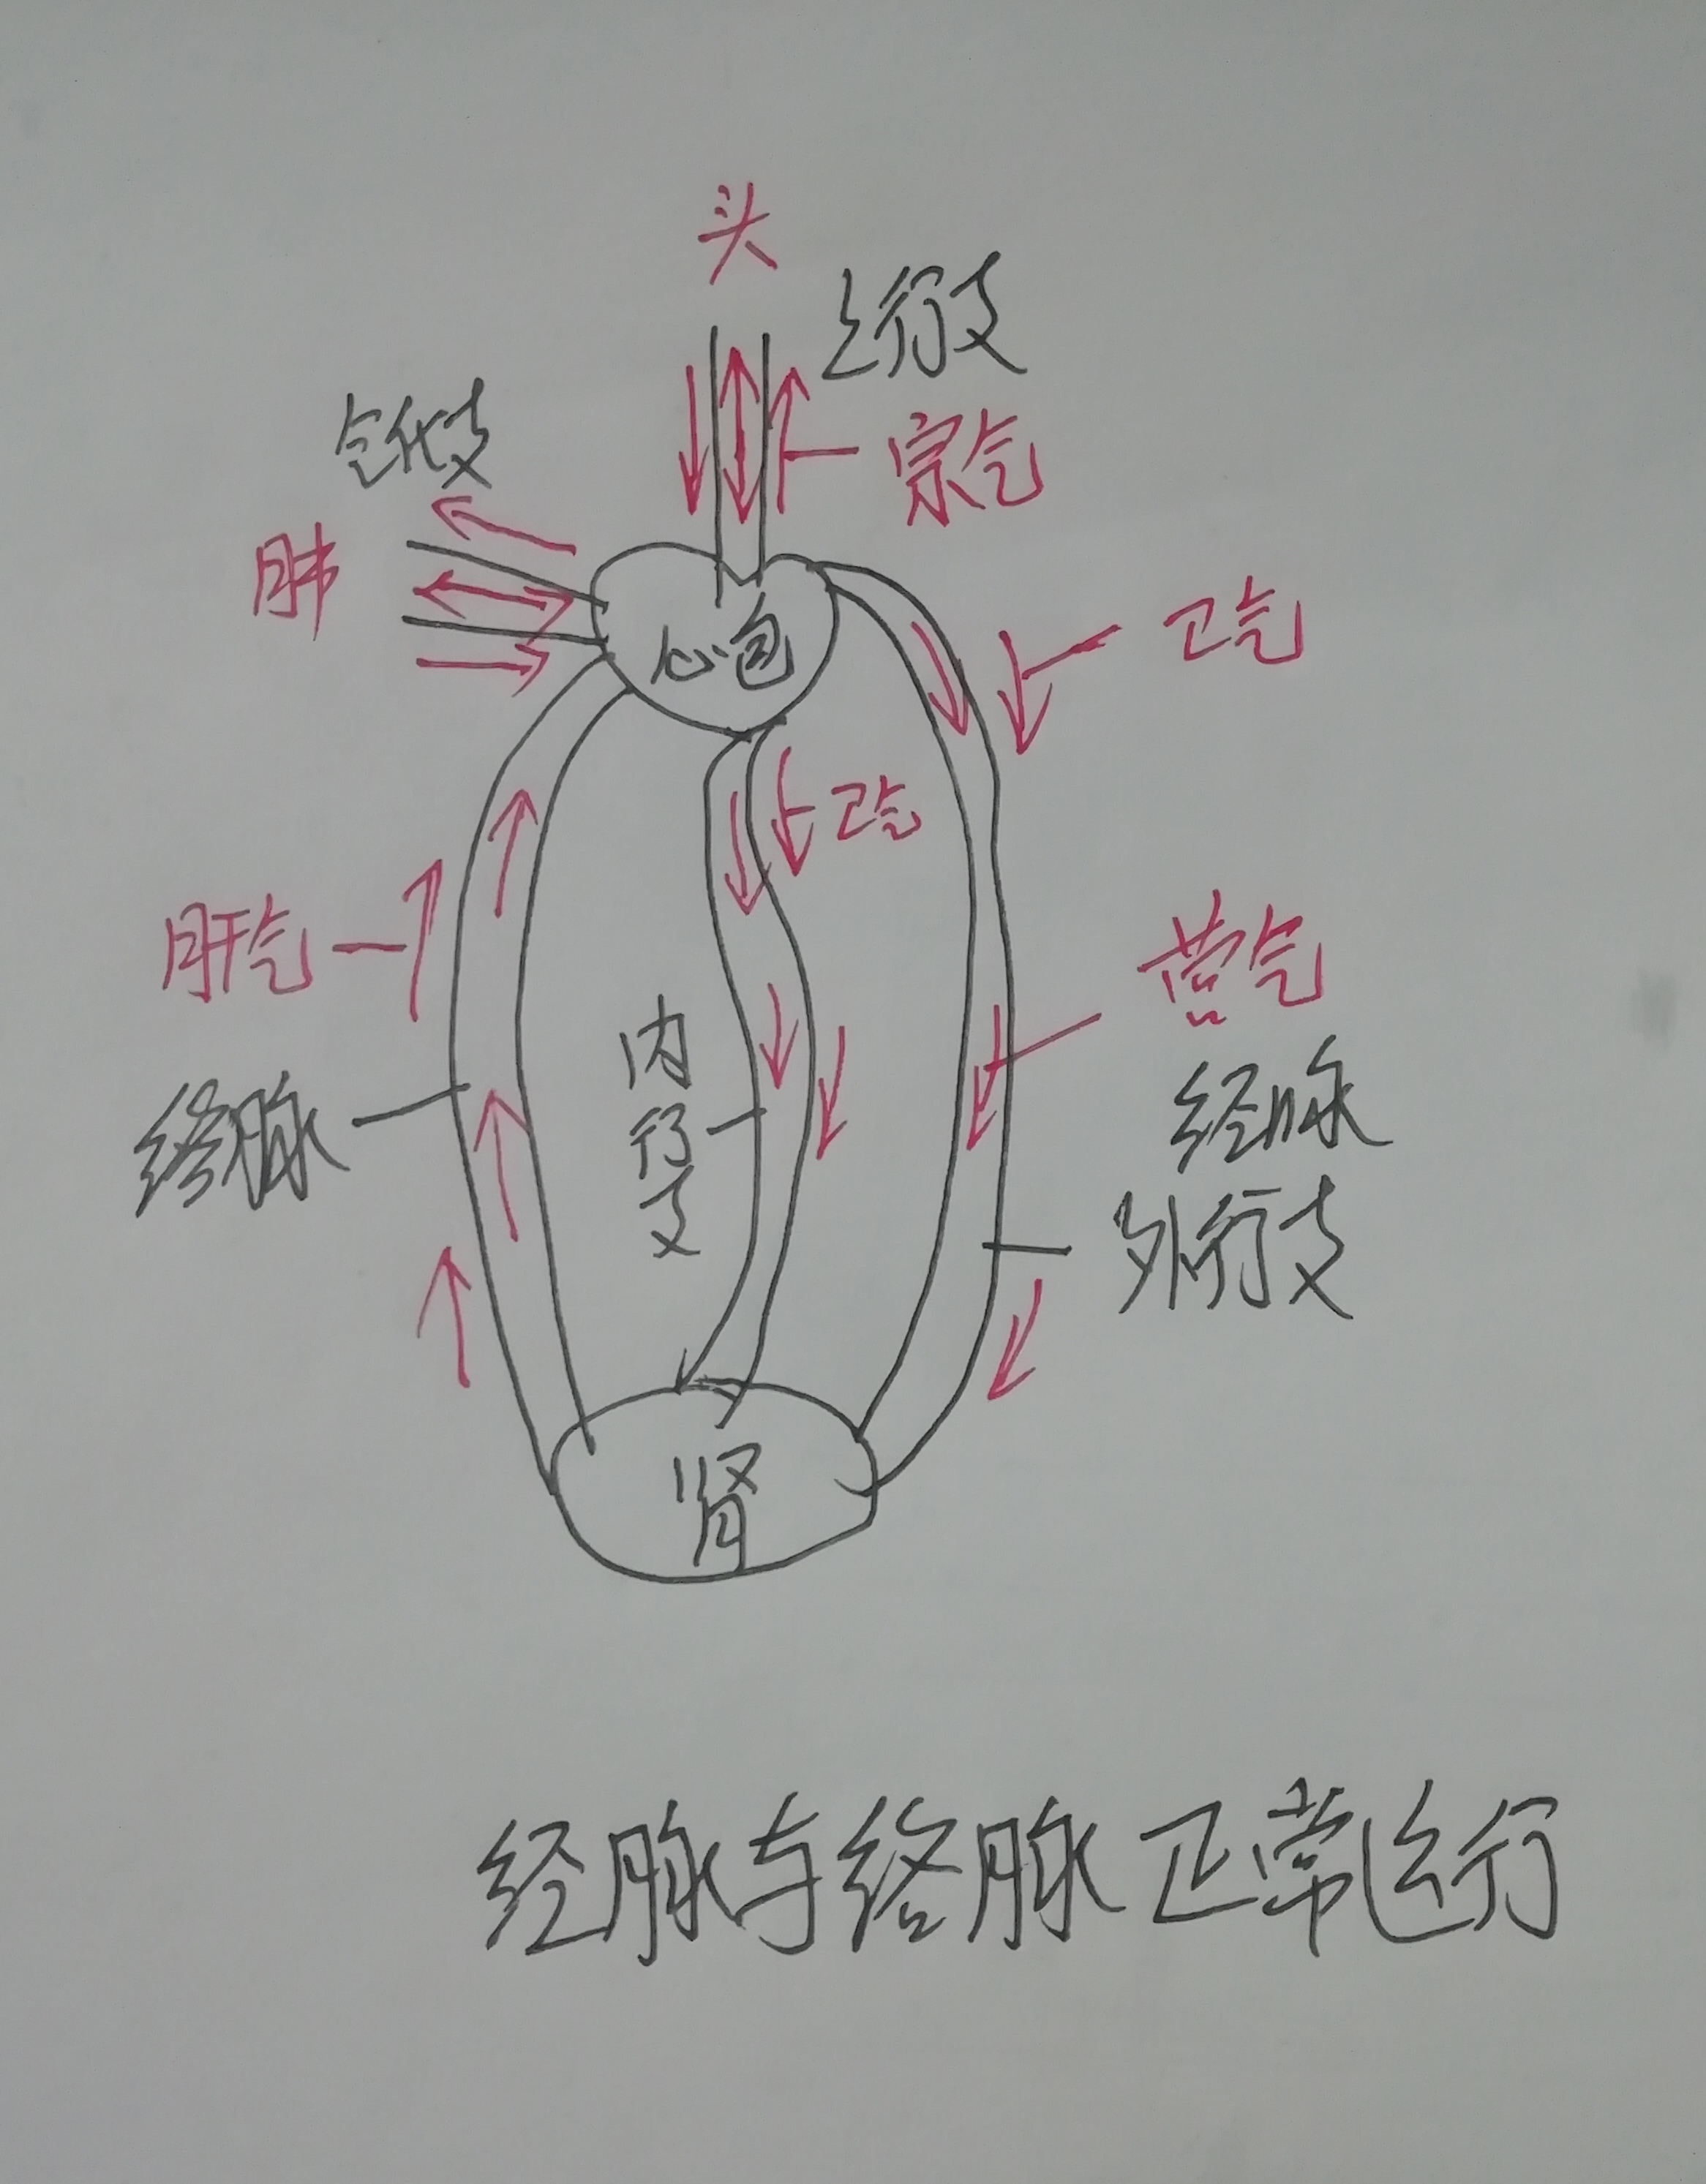 头
上行支
宗气
气代支
肺
心包
卫气
卫气
肝气
营气
络脉
内行支
经脉
外行支
肾
经脉与络脉正常运行